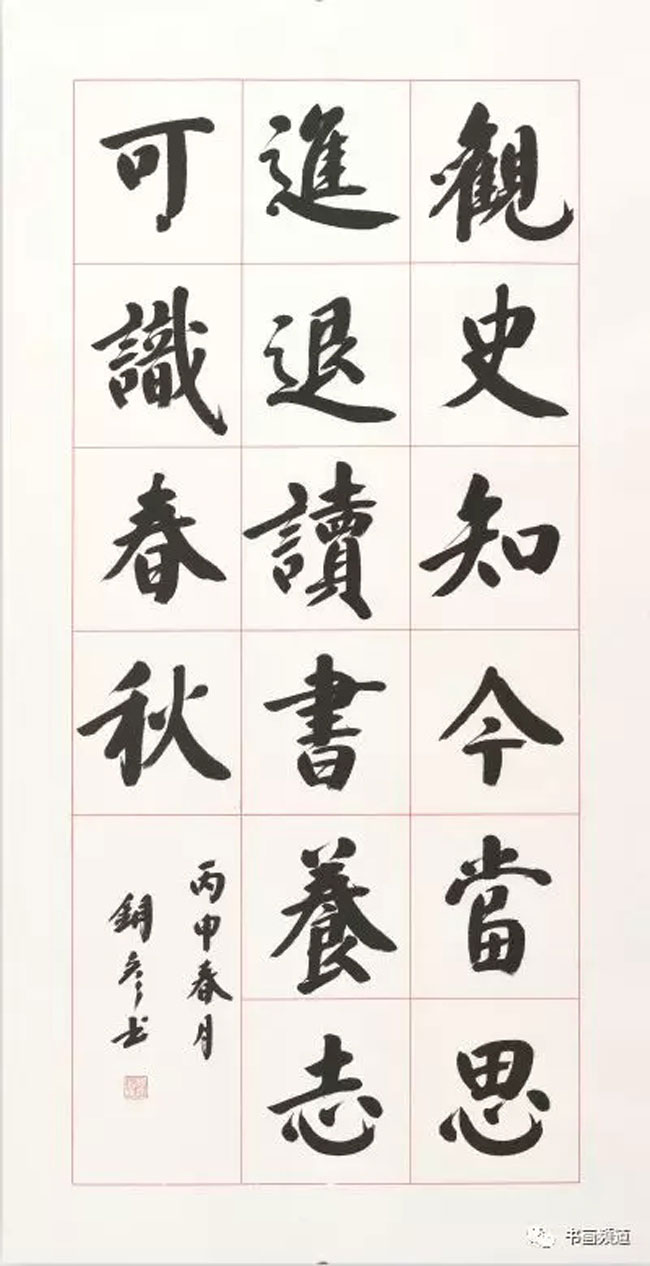 觀史知今當思
進退讀書養志
可識春秋
丙申春月
銅彦书
书画频道